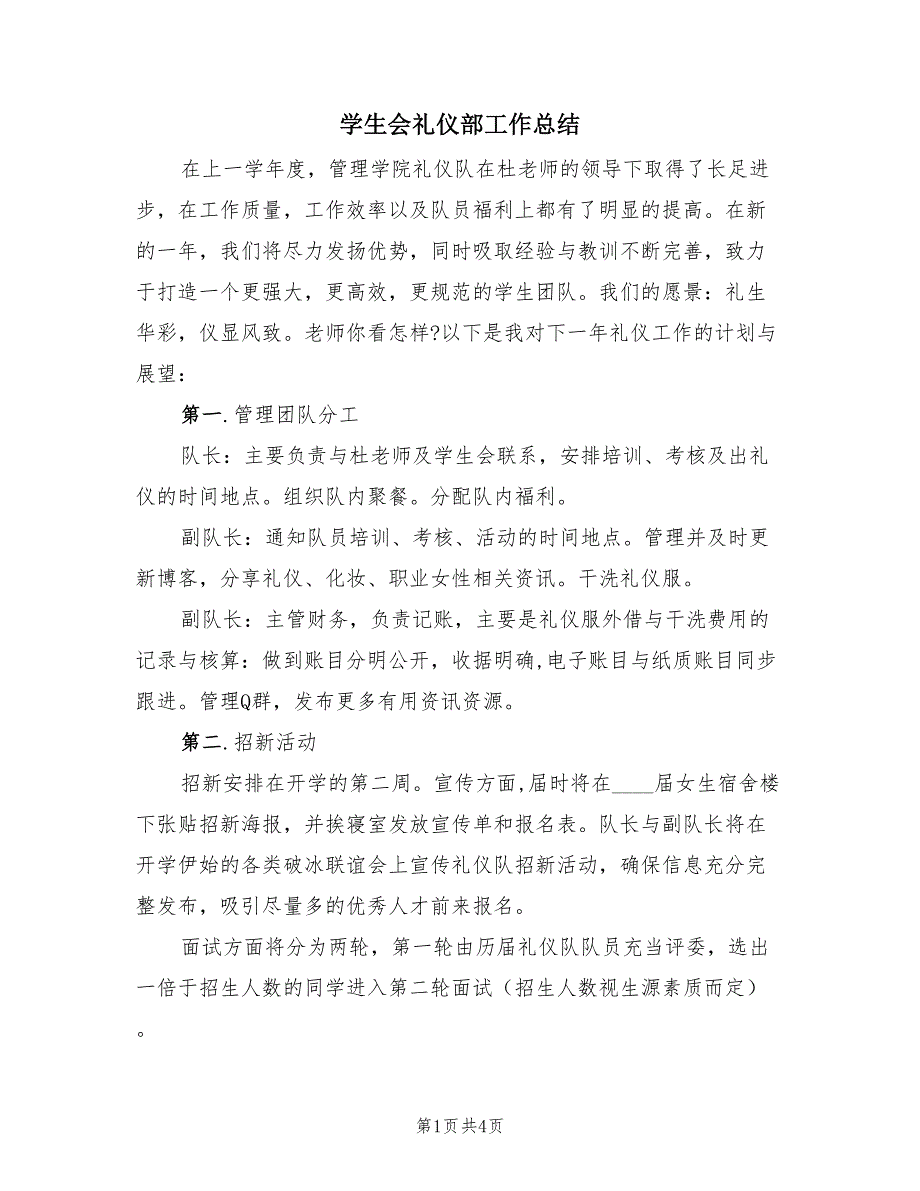 学生会礼仪部工作总结
在上一学年度，管理学院礼仪队在杜老师的领导下取得了长足进
步，在工作质量，工作效率以及队员福利上都有了明显的提高。在新
的一年，我们将尽力发扬优势，同时吸取经验与教训不断完善，致力
于打造一个更强大，更高效，更规范的学生团队。我们的愿景：礼生
华彩，仪显风致。老师你看怎样?以下是我对下一年礼仪工作的计划与
展望：
第一.管理团队分工
队长：主要负责与杜老师及学生会联系，安排培训、考核及出礼
仪的时间地点。组织队内聚餐。分配队内福利。
副队长：通知队员培训、考核、活动的时间地点。管理并及时更
新博客，分享礼仪、化妆、职业女性相关资讯。干洗礼仪服。
副队长：主管财务，负责记账，主要是礼仪服外借与干洗费用的
记录与核算：做到账目分明公开，收据明确,电子账目与纸质账目同步
跟进。管理Q群，发布更多有用资讯资源。
第二.招新活动
招新安排在开学的第二周。宣传方面,届时将在____届女生宿舍楼
下张贴招新海报，并挨寝室发放宣传单和报名表。队长与副队长将在
开学伊始的各类破冰联谊会上宣传礼仪队招新活动，确保信息充分完
整发布，吸引尽量多的优秀人才前来报名。
面试方面将分为两轮，第一轮由历届礼仪队队员充当评委，选出
一倍于招生人数的同学进入第二轮面试（招生人数视生源素质而定）
。
第1页共4页